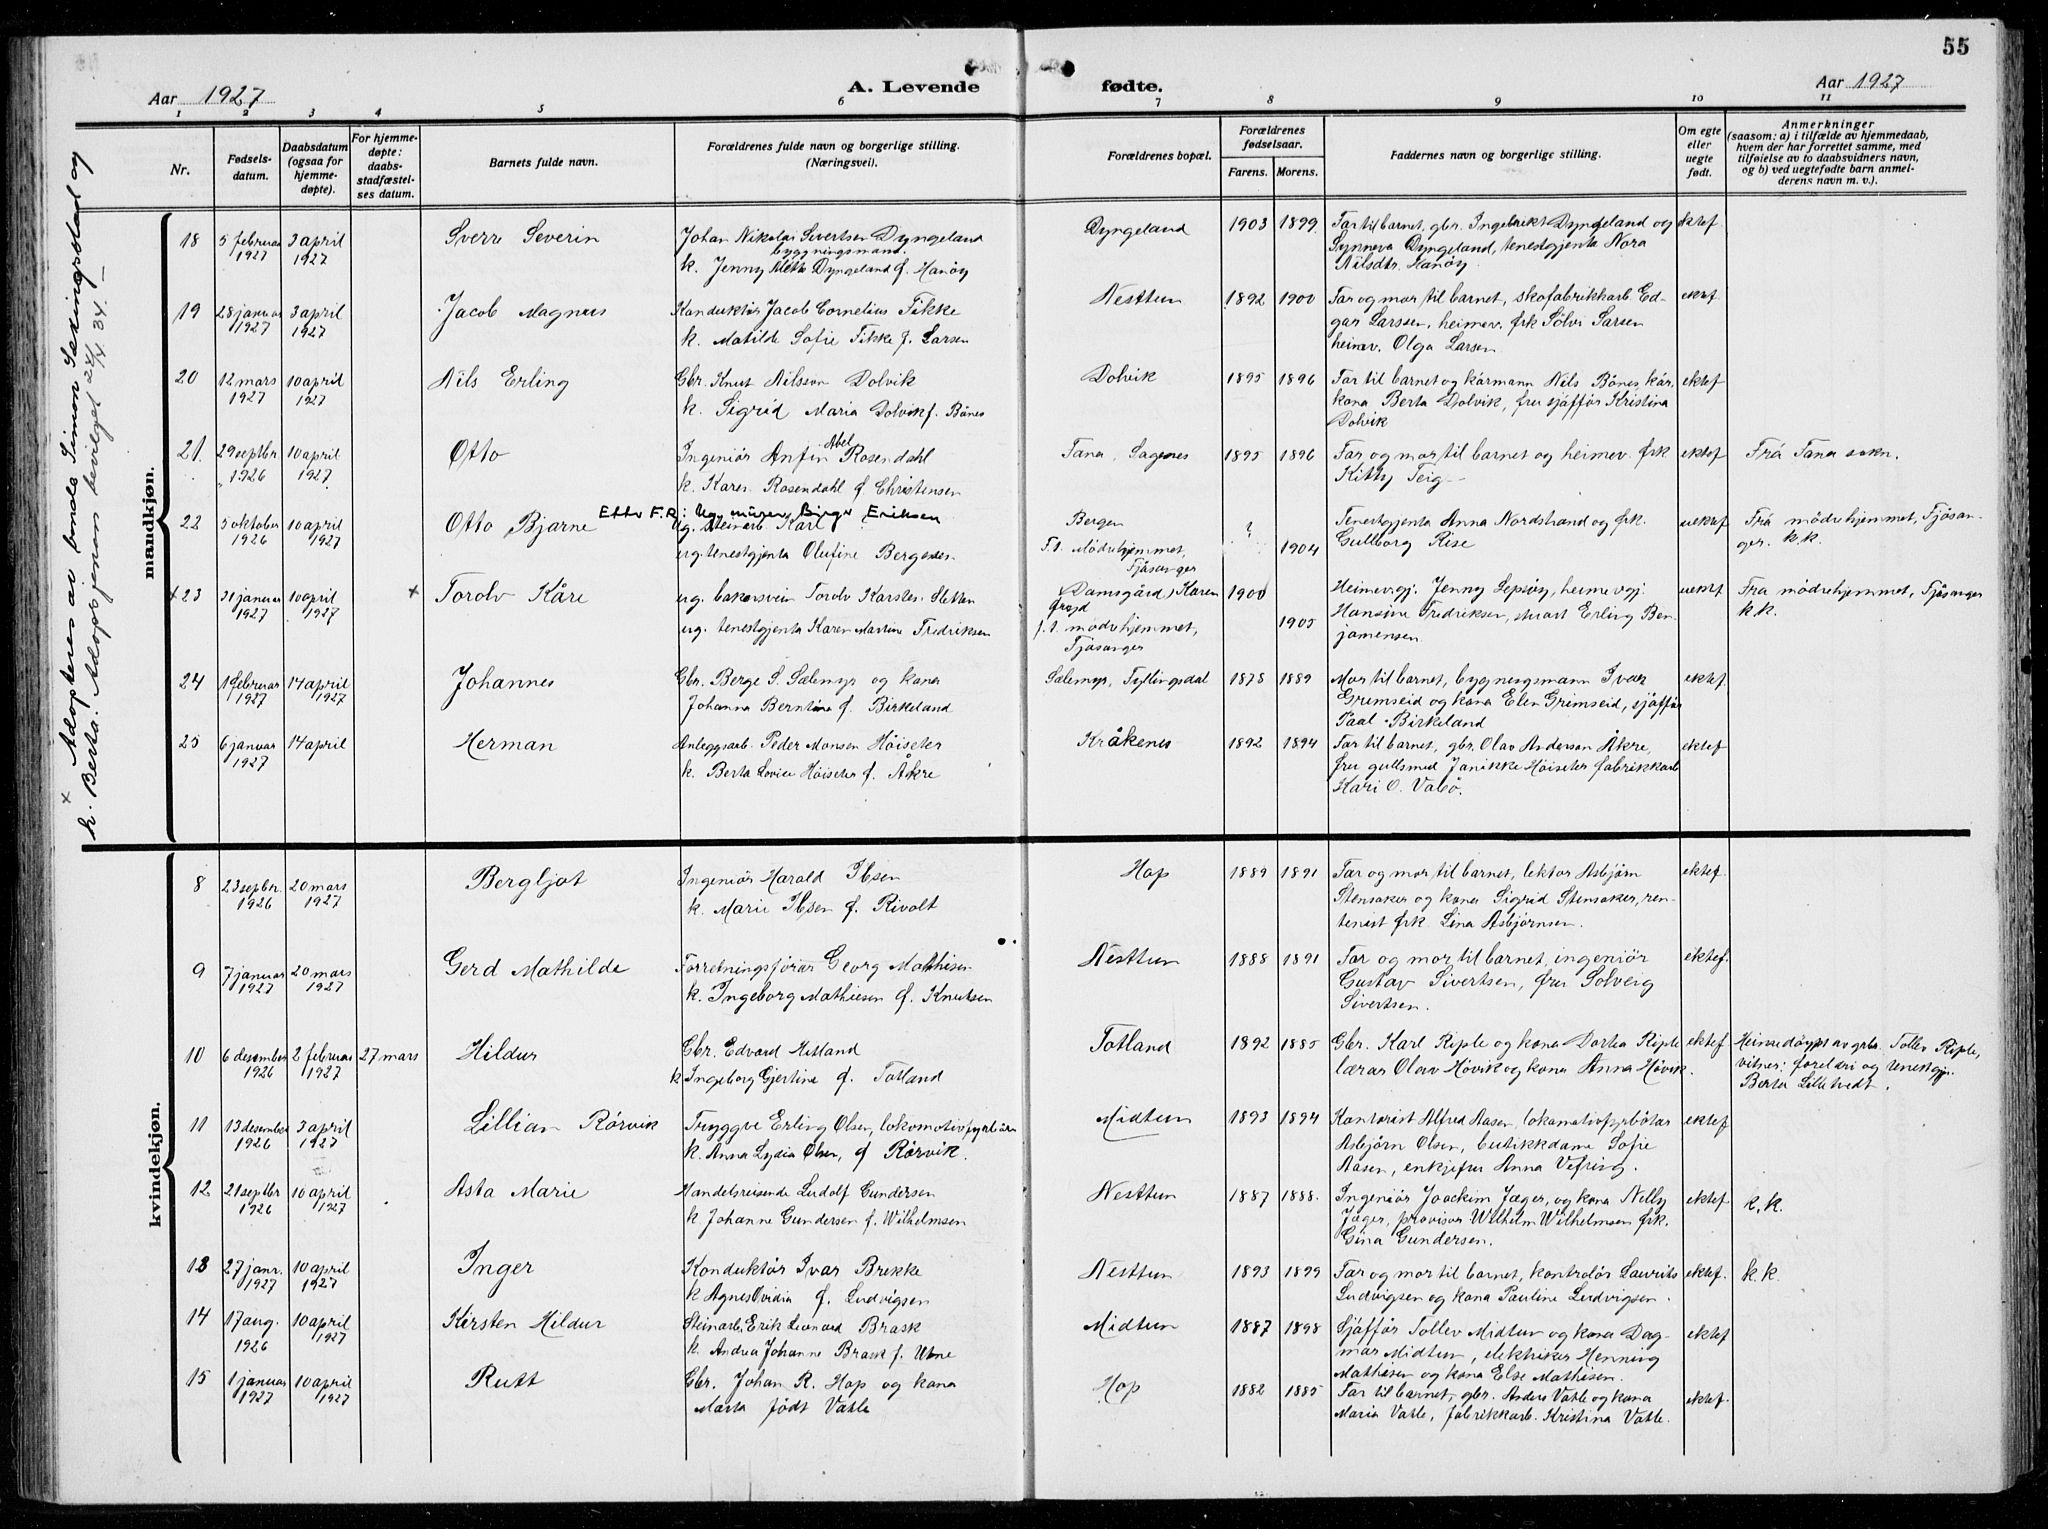 55
Aar 1927
A. Levende fødte.
Aar 1927
1 2 3 4 5 6 7 8 9 10 11
Nr.
Fødsels-
datum.
Daabsdatum
(ogsaa for
hjemme-
døpte).
For hjemme-
døpte:
daabs-
stadfæstel-
ses datum.
Barnets fulde navn.
Forældrenes fulde navn og borgerlige stilling.
(Næringsvei).
Forældrenes bopæl.
Forældrenes
fødselsaar.
Farens. Morens.
Faddernes navn og borgerlige stilling.
Om egte
eller
uegte
født.
Anmerkninger
(saasom: a) i tilfælde av hjemmedaab,
hvem der har forrettet samme, med
tilføielse av to daabsvidners navn,
og b) ved uegtefødte barn anmel-
derens navn m. v.).
× Adopteres av bonde Simon Sexingstad og
h. Berta. Adopsjenom bevilget 24/4 34. –
mandkjøn.
18 5 februar 1927 3 april 1927 Sverre Severin
Johan Nikolai Sivertsen Dyngeland
byggningsmand.
k. Jenny Metta Dyngeland f. Hanøy
Dyngeland 1903 1899
Far til barnet, gbr. Ingebrikt Dyngeland og
Synneva Dyngeland, tenestgjenta Nora
Nilsdtr. Hanøy
ektef
19 28 januar 1927 3 april 1927 Jacob Magnus
Konduktør Jacob Cornelius Fikke
k. Matilde Sofie Fikke f. Larsen
Nesttun 1892 1900
Far og mor til barnet, skofabrikkarb Ed-
gar Larssen, heimev. frk Sølvi Larsen
heimev. Olga Larsen
ektef
20 12 mars 1927 10 april 1927 Nils Erling
Gbr. Knut Nilsson Dolvik
k. Sigrid Maria Dolvik f. Bønes
Dolvik 1895 1896
Far til barnet og kårmann Nils Bønes, kår-
kona Berta Dolvik, fru sjåffør Kristina
Dolvik
ektef
21. 29 septbr 1926 10 april 1927 Otto
Ingeniør Anfin Abel Rosendahl
k. Karen Rosendahl f Christensen
Tana, Sagenes 1895 1896
Far og mor til barnet og heimev. frk
Kitty Teig
ektef
Frå Tana sokn.
22 5 oktober 1926 10 april 1927 Otto Bjarne
Etter F.R: Ug. murer Birger Eriksen
ug. Steinarb Karl
ug. tenestgjenta Olufine Bergesen
Bergen
F.t. Mødrehjemmet,
Fjøsanger
? 1904
Tenestgjenta Anna Nordstrand og frk.
Gullborg Rise
uektef
Frå mødrehjemmet, Fjøsan-
ger. k.k.
×23 31 januar 1927 10 april 1927 × Torolv Kåre
ug. bakersvein Torolv Karsten Sletten
ug. tenestgjenta Karen Martine Fredriksen
Damsgård, Karen
f.t. mødrehjemmet,
Fjøsanger
1900 1905
Heimevgj. Jenny Lepsøy, heimevgj.
Hansine Fredriksen, stuart Erling Ben-
jamensen
uektef
Fra mødrehjemmet, Fjøsanger
k.k.
24 1 februar 1927 14 april 1927 Johannes
Gbr. Berge S. Sælemyr og kona
Johanna Berntine f. Birkeland
Sælemyr, Fyllingsdal 1878 1889
Mor til barnet, bygnesgsmann Ivar
Grimseid og kona Elen Grimseid, sjåffør
Paal Birkeland
ektef
25 6 januar 1927 14 april Herman
Anleggsarb. Peder Monsen Høiseter
k. Berta Lovise Høiseter f. Åkre
Kråkenes 1892 1894
Far til barnet, gbr. Olav Anderson Åkre,
fru gullsmed Janikke Høiseter fabrikkarb
Kari O. Valsø.
ektef
kvindekjøn.
8 23 septbr. 1926 20 mars 1927 Bergljot
Ingeniør Harald Ibsen
k. Marie Ibsen f. Rivolt
Hop 1889 1891
Far og mor til barnet, lektor Asbjørn
Stensaker og kona Sigrid Stensaker, ren-
tenist frk. Lina Asbjørnsen.
ektef
9 7 januar 1927 20 mars 1927 Gerd Mathilde
Forretningsførar Georg Mathisen
k. Ingeborg Mathiesen f. Knutsen
Nesttun 1888 1891
Far og mor til barnet, ingeniør
Gustav Sivertsen, fru Solveig
Sivertsen.
ektef.
10 6 desember 1926 2 februar 1927 27 mars Hildur
Gbr. Edvard Hetland
k Ingeborg Gjertine f. Totland
Totland 1892 1885
Gbr. Karl Riple og kona Dortea Riple
lærar Olav Høvik og kona Anna Høvik.
ektef
Heimedøypt av gbr. Tollev Riple,
vitner: foreldri og tenestgj.
Berta Lilletvedt.
11 13 desember 1926 3 april 1927 Lillian Rørvik
Tryggve Erling Olsen, lokomotivfyrbøter
k. Anna Lydia Olsen, f Rørvik.
Midttun 1893 1894
Kontorist Alfred Aasen, lokomotivfyrbøtar
Asbjørn Olsen, butikkdame Sofie
Aasen, enkjefru Anna Vefring.
ektef
12 21 septbr 1926 10 april 1927 Asta Marie
Handelsreisende Ludolf Gundersen
k. Johanne Gundersen f. Wilhelmsen
Nesttun 1887 1888.
Ingeniør Joackim Jæger, og kona Nelly
Jæger, provisor Wilhelm Wilhelmsen frk.
Gina Gundersen.
ektef
k.k.
13 27 janr. 1927 10 april 1927 Inger
Konduktør Ivar Brekke
k Agnes Ovidia f. Ludvigsen
Nesttun 1893 1899
Far og mor til barnet, kontrolør Laurits
Ludvigsen og kona Pauline Ludvigsen.
ektef.
k.k.
14 17 aug. 1926 10 april 1927 Kirsten Hildur
Steinarb. Erik Leonard Brask
k. Andrea Johanne Brask f. Utne
Midtun 1887 1898
Sjåffør Tollev Midtun og kona Dag-
mar Midtun, elektriker Henning
Mathisen og kona Else Mathisen.
ektef
15 1 januar 1927 10 april 1927 Rutt
Gbr. Johan R. Hop og kona
Marta født Vatle
Hop 1882 1885
Far til barnet, gbr. Anders Vatle og kona
Maria Vatle, fabrikkarb. Kristina Vatle.
ektef.